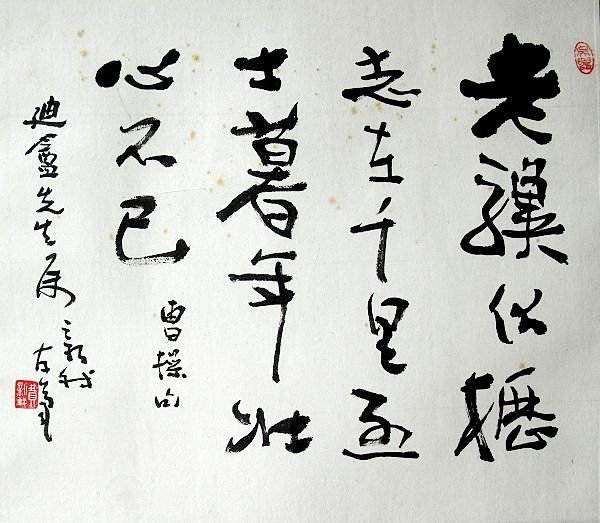 老驥伏櫪
志在千里烈
士暮年壮
心不已
曹操句
迪盦先生属
新我
左笔